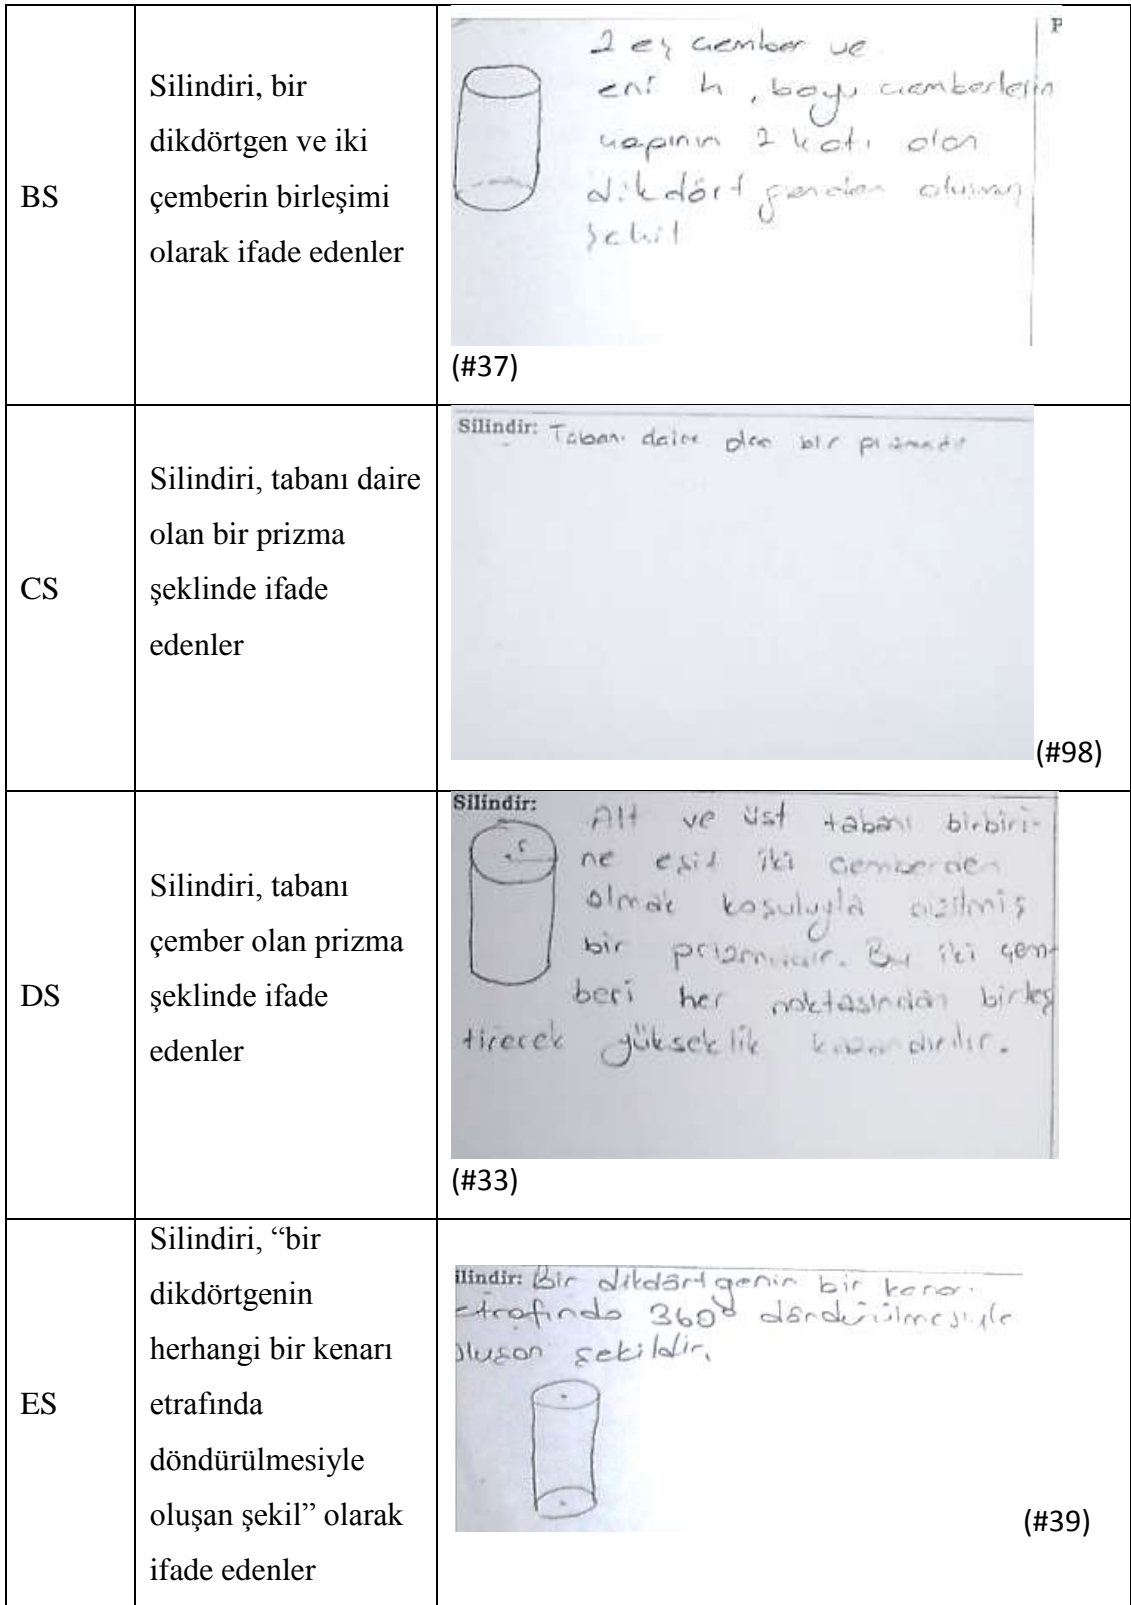 BS
Silindiri, bir
dikdörtgen ve iki
çemberin birleşimi
olarak ifade edenler
2 eş çember ve
eni h, boyu çemberlerin
çapının 2 katı olan
dikdörtgenden oluşmuş
şekil
P
(#37)
CS
Silindiri, tabanı daire
olan bir prizma
şeklinde ifade
edenler
Silindir: Tabanı daire olan bir prizmadır
(#98)
DS
Silindiri, tabanı
çember olan prizma
şeklinde ifade
edenler
Silindir:
r
Alt ve üst tabanı birbiri-
ne eşit iki çemberden
olmak koşuluyla çizilmiş
bir prizmadır. Bu iki çem-
beri her noktasından birleş
tirecek yükseklik kazandırılır.
(#33)
ES
Silindiri, “bir
dikdörtgenin
herhangi bir kenarı
etrafında
döndürülmesiyle
oluşan şekil” olarak
ifade edenler
ilindir: Bir dikdörtgenin bir kenarı
etrafında 360° döndürülmesiyle
oluşan şekildir.
(#39)